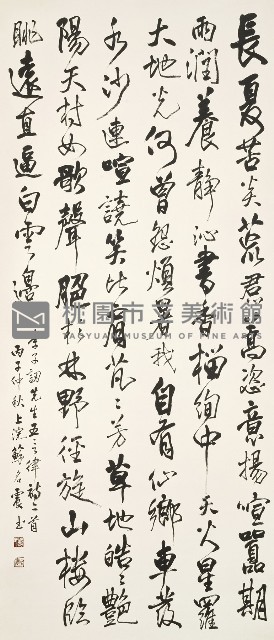 長夏苦炎荒君高恣意揚喧囂期
雨潤養靜沁書香榴絢中天火星羅
大地光何曾怨煩暑我自有仙鄉車發
水沙連喧譊笑比肩花々芳草地皓々豔
陽天村女歌聲林野徑旋山樓臨
眺遠直逼白雲邊
李子先生五言律詩二首
丙子仲秋上浣蘇名震書
桃園市立美術館
TAOYUAN MUSEUM OF FINE ARTS